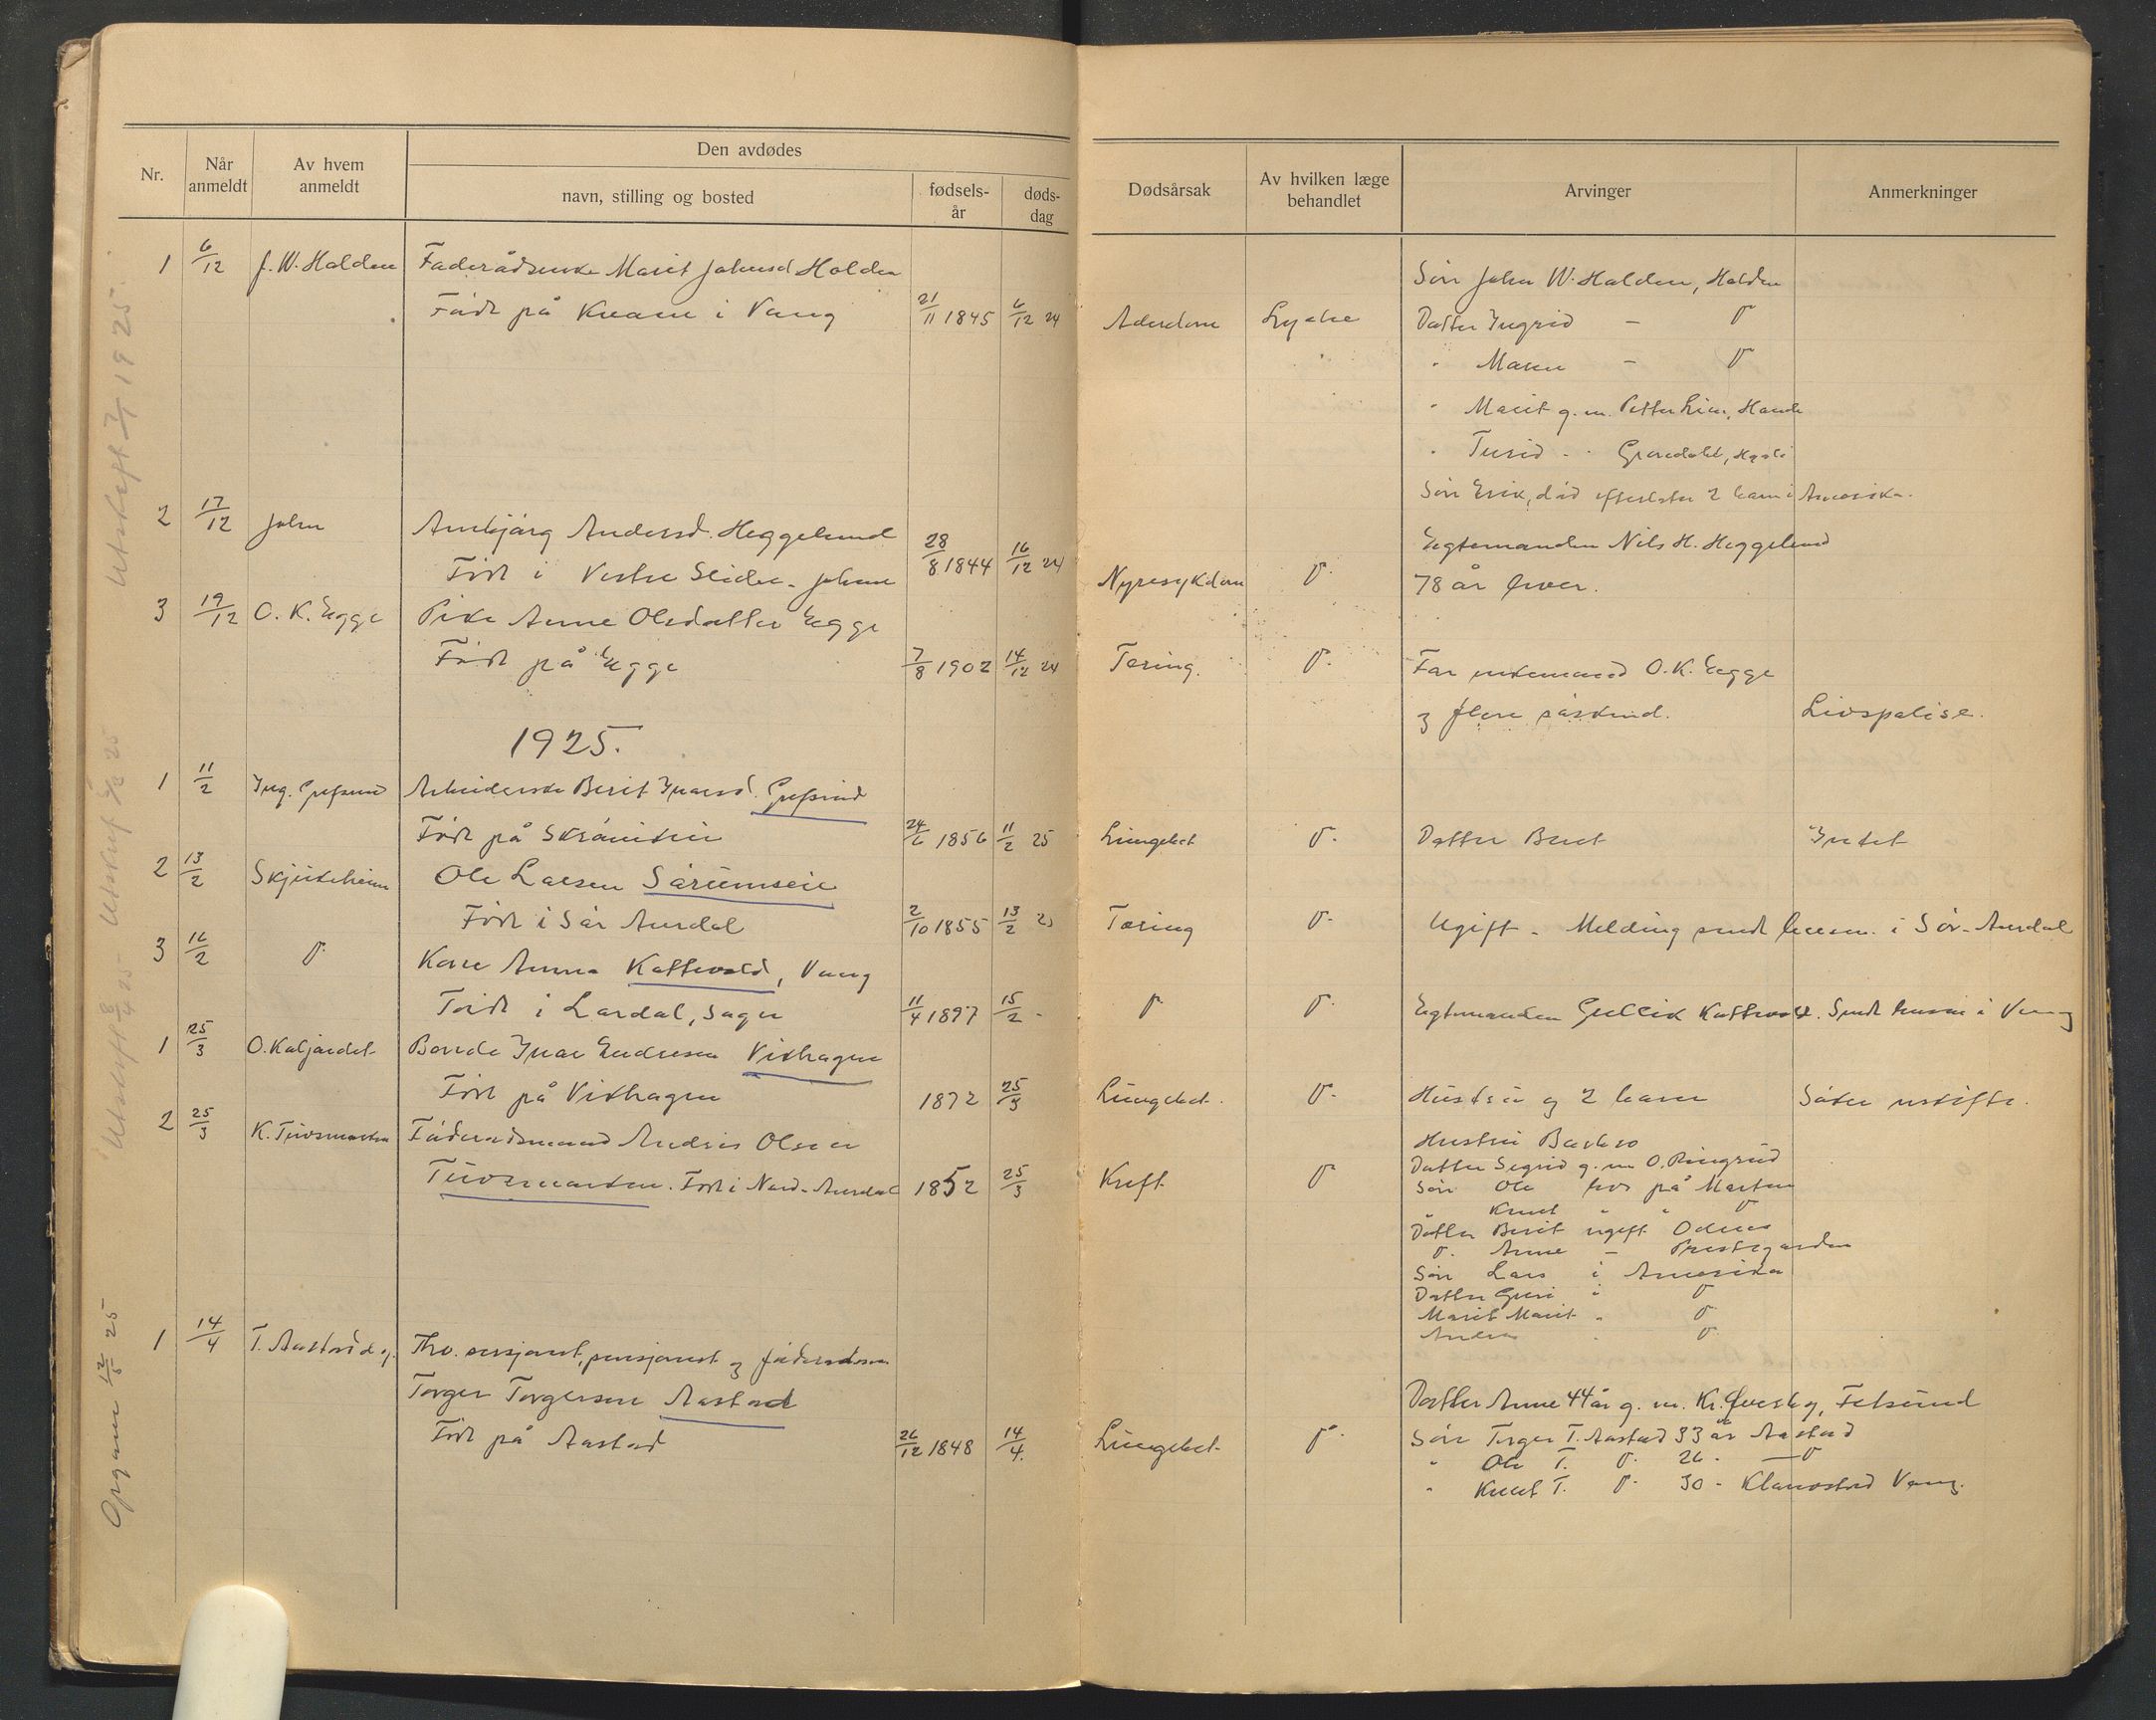 Nr.
Når anmeldt
Av hvem anmeldt
Den avdødes
navn, stilling og bosted
fødsels-år
døds-dag
Dødsårsak
Av hvilken læge behandlet
Arvinger
Anmerkninger
1 6/12 J. W. Holden Føderådsenke Marit Johnsd Holden
Født på Kvame i Vang 21/11 1845 6/12 24 Alderdom Lyche
Søn John W. Holden, Holden
Datter Ingrid — D
" Maren — D
" Marit g. m. Petter Lien, Hande
" Turid - -
Søn Erik, død efterlater 2 barn i Amerika.
2 17/12 John Ambjørg Andersd. Heggelund
Født i Vestre Slidre - 28/8 1844 16/12 24 Nyresykdom D.
Egtemanden Nils H. Heggelund
78 år lever.
3 19/12 O. K. Egge Pike Anne Olsdatter Egge
Født på Egge 7/8 1902 14/12 24 Tæring. D.
Far enkemand O. K. Egge
og flere søskend. Livspolise.
1925.
1 11/2 Ing. Grefsrud Arbeiderske Berit Ivarsd. Grefsrud
Født på 24/6 1856 11/2 25 Lungebet D. Datter Berit Intet
2 13/2 Skjuteheim Ole Larsen Sørumseie
Født i Sør Aurdal 2/10 1855 13/2 25 Tæring D. Ugift - Melding sendt lensm. i Sør-Aurdal
3 16/2 D. Kone Anna Kattevold, Vang
Født i Lærdal, Sogn 11/4 1897 15/2 - D D. Egtemanden Gullik Kattevold. Sendt lensm i Vang
1 25/3 O. Kaljordet Bonde Ivar Endresen Vikhagen
Født på Vikhagen 1872 25/3 Lungebet. D. Hustru og 2 barn Søker uskifte.
2 25/3 K. Tuvsmarken Føderådsmand Andris Olsen
Tuvsmarken. Født i Nord-Aurdal 1852 25/3 Kreft D
Hustru Barbro
Datter Sigrid g. m O. Ringrud
Søn Ole bor på Marken
" Knut " " D
Datter Berit ugift Odnes
D. Anne — Prestegarden
Søn Lars i Amerika
Datter Guri i D
Marit Marit " D
Andris " D
1 14/4 T. Aastad Thv. sersjant, pensjonist og føderådsm
Torger Torgersen Aastad
Født på Aastad 26/12 1848 14/4. Lungebet. D.
Datter Anne 44 år g. m. Kr. Øvreby, Felsund
Søn Torger T. Aastad 33 år Aastad
" Ole T. D. 26 - — D
" Knut T. D. 30 - Klanostad Vang.
Utskrift 7/1 1925.
Utskrift 5/2 25
Utskrift 8/4 25
Opgave 12/5 25